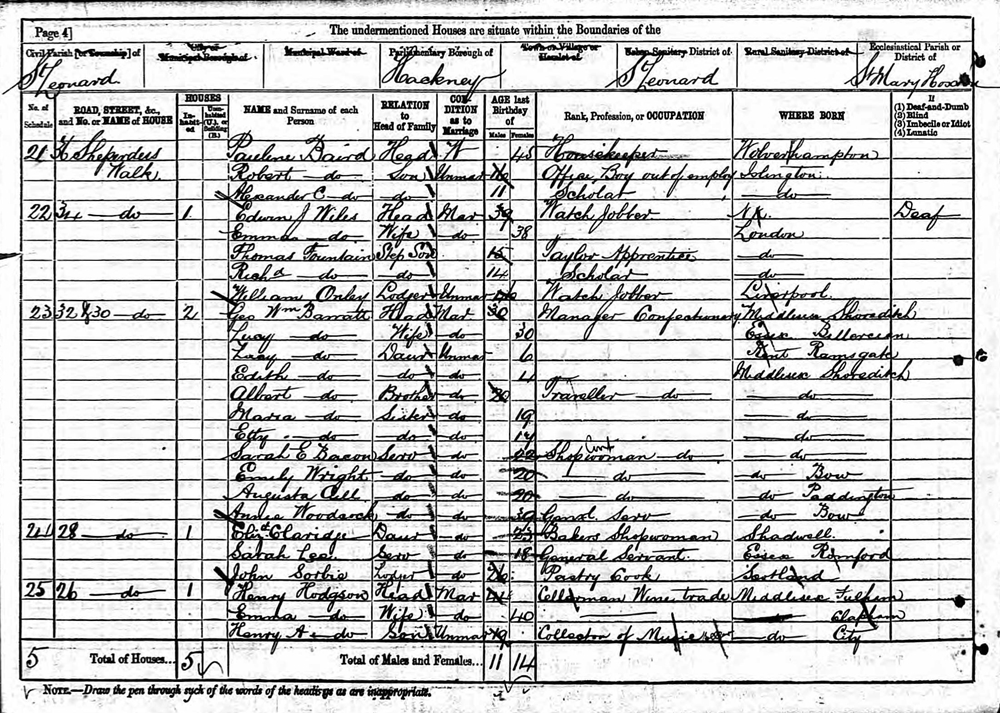 Page 4] The undermentioned Houses are situate within the Boundaries of the
Civil Parish [or Township] of City or Municipal Borough of Municipal Ward of Parliamentary Borough of Town or Village or Hamlet of Urban Sanitary District of Rural Sanitary District of Ecclesiastical Parish or District of
St Leonard Hackney St Leonard St Mary Hoxton
No. of Schedule ROAD, STREET, &c. and No. or NAME of HOUSE HOUSES In-habited Uninhabited (U.), or Building (B.) NAME and Surname of each Person RELATION to Head of Family CONDITION as to Marriage AGE last Birthday of Males Females Rank, Profession, or OCCUPATION WHERE BORN If (1) Deaf-and-Dumb (2) Blind (3) Imbecile or Idiot (4) Lunatic
21 Sheperdess Pauline Baird Head W 45 Housekeeper Wolverhampton
Walk Robert do Son Unmar 16 Office Boy out of employ Islington
Alexander C do do 11 Scholar do
22 34 do 1 Edwin J Wiles Head Mar 39 Watch Jobber N.K. Deaf
Emma do Wife do 38 London
Thomas Fountain Step Son 15 Taylor Apprentice do
Richd do do 14 Scholar do
William Onley Lodger Unmar Watch Jobber Liverpool
23 32 & 30 do 2 Geo Wm Barratt Head Mar 30 Manager Confectionery Middlesex Shoreditch
Lucy do Wife do 30 Essex Billericay
Lucy do Daur Unmar 6 Kent Ramsgate
Edith do do do 4 Middlesex Shoreditch
Albert do Brother do 20 Traveller do do
Maria do Sister do 19 do
Etty do do do 14 do
Sarah E Bacon Serv do 22 Shopwoman do do
Emily Wright do do 20 do do Bow
Augusta Cell do do 20 do do Paddington
Annie Woodcock do do 39 Genl. Serv do Bow
24 28 do 1 Elizt Claridge Daur do 23 Bakers Shopwoman Shadwell
Sarah Lea Serv do 18 General Servant Essex Romford
John Sorbie Lodger do 26 Pastry Cook Scotland
25 26 do 1 Henry Hodgson Head Mar Cellarman Wine trade Middlesex Fulham
Emma do Wife do 40 Clapham
Henry A do Son Unmar 19 Collector of Music do City
5 Total of Houses... 5 Total of Males and Females... 11 14
NOTE.—Draw the pen through such of the words of the headings as are inappropriate.